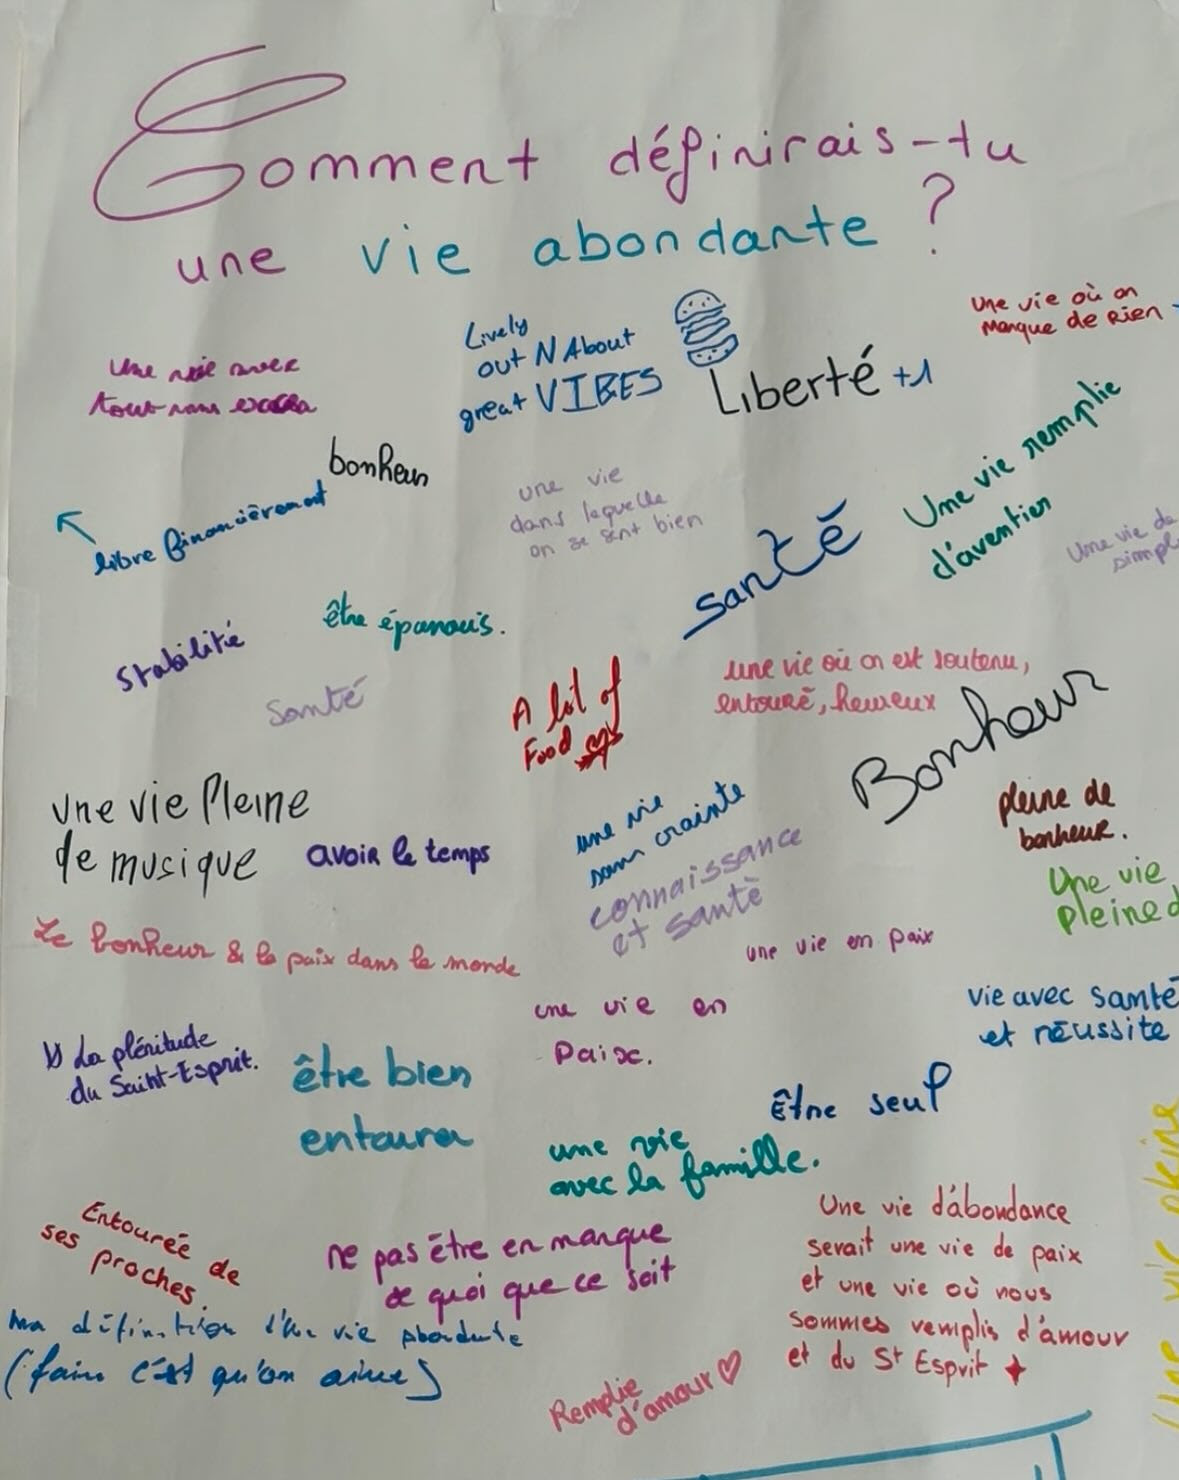 Comment définirais-tu
une vie abondante ?
une vie où on
manque de rien
Lively
out N About
great VIBES
Liberté +1
une vie avec
tout sans
bonheur
libre financièrement
une vie
dans laquelle
on se sent bien
Une vie remplie
d'aventier
santé
Une vie de
être épanouis.
Stabilitié
Santé
une vie où on est soutenu,
entouré, heureux
A lot of
Food
Bonheur
une vie Pleine
de musique
avoir le temps
une vie
sans crainte
connaissance
et santé
pleine de
bonheur.
Une vie
pleine
Le bonheur & la paix dans le monde
une vie en paix
une vie en
Paix.
vie avec santé
et réussite
La plénitude
du Saint-Esprit.
être bien
entoura
Être seul
une vie
avec la famille.
Entourée de
ses proches.
ne pas être en manque
de quoi que ce soit
Une vie d'abondance
serait une vie de paix
et une vie où nous
sommes remplis d'amour
et du St Esprit
ma définition d'une vie abondante
(faire c'est qu'on aime)
Remplie
d'amour